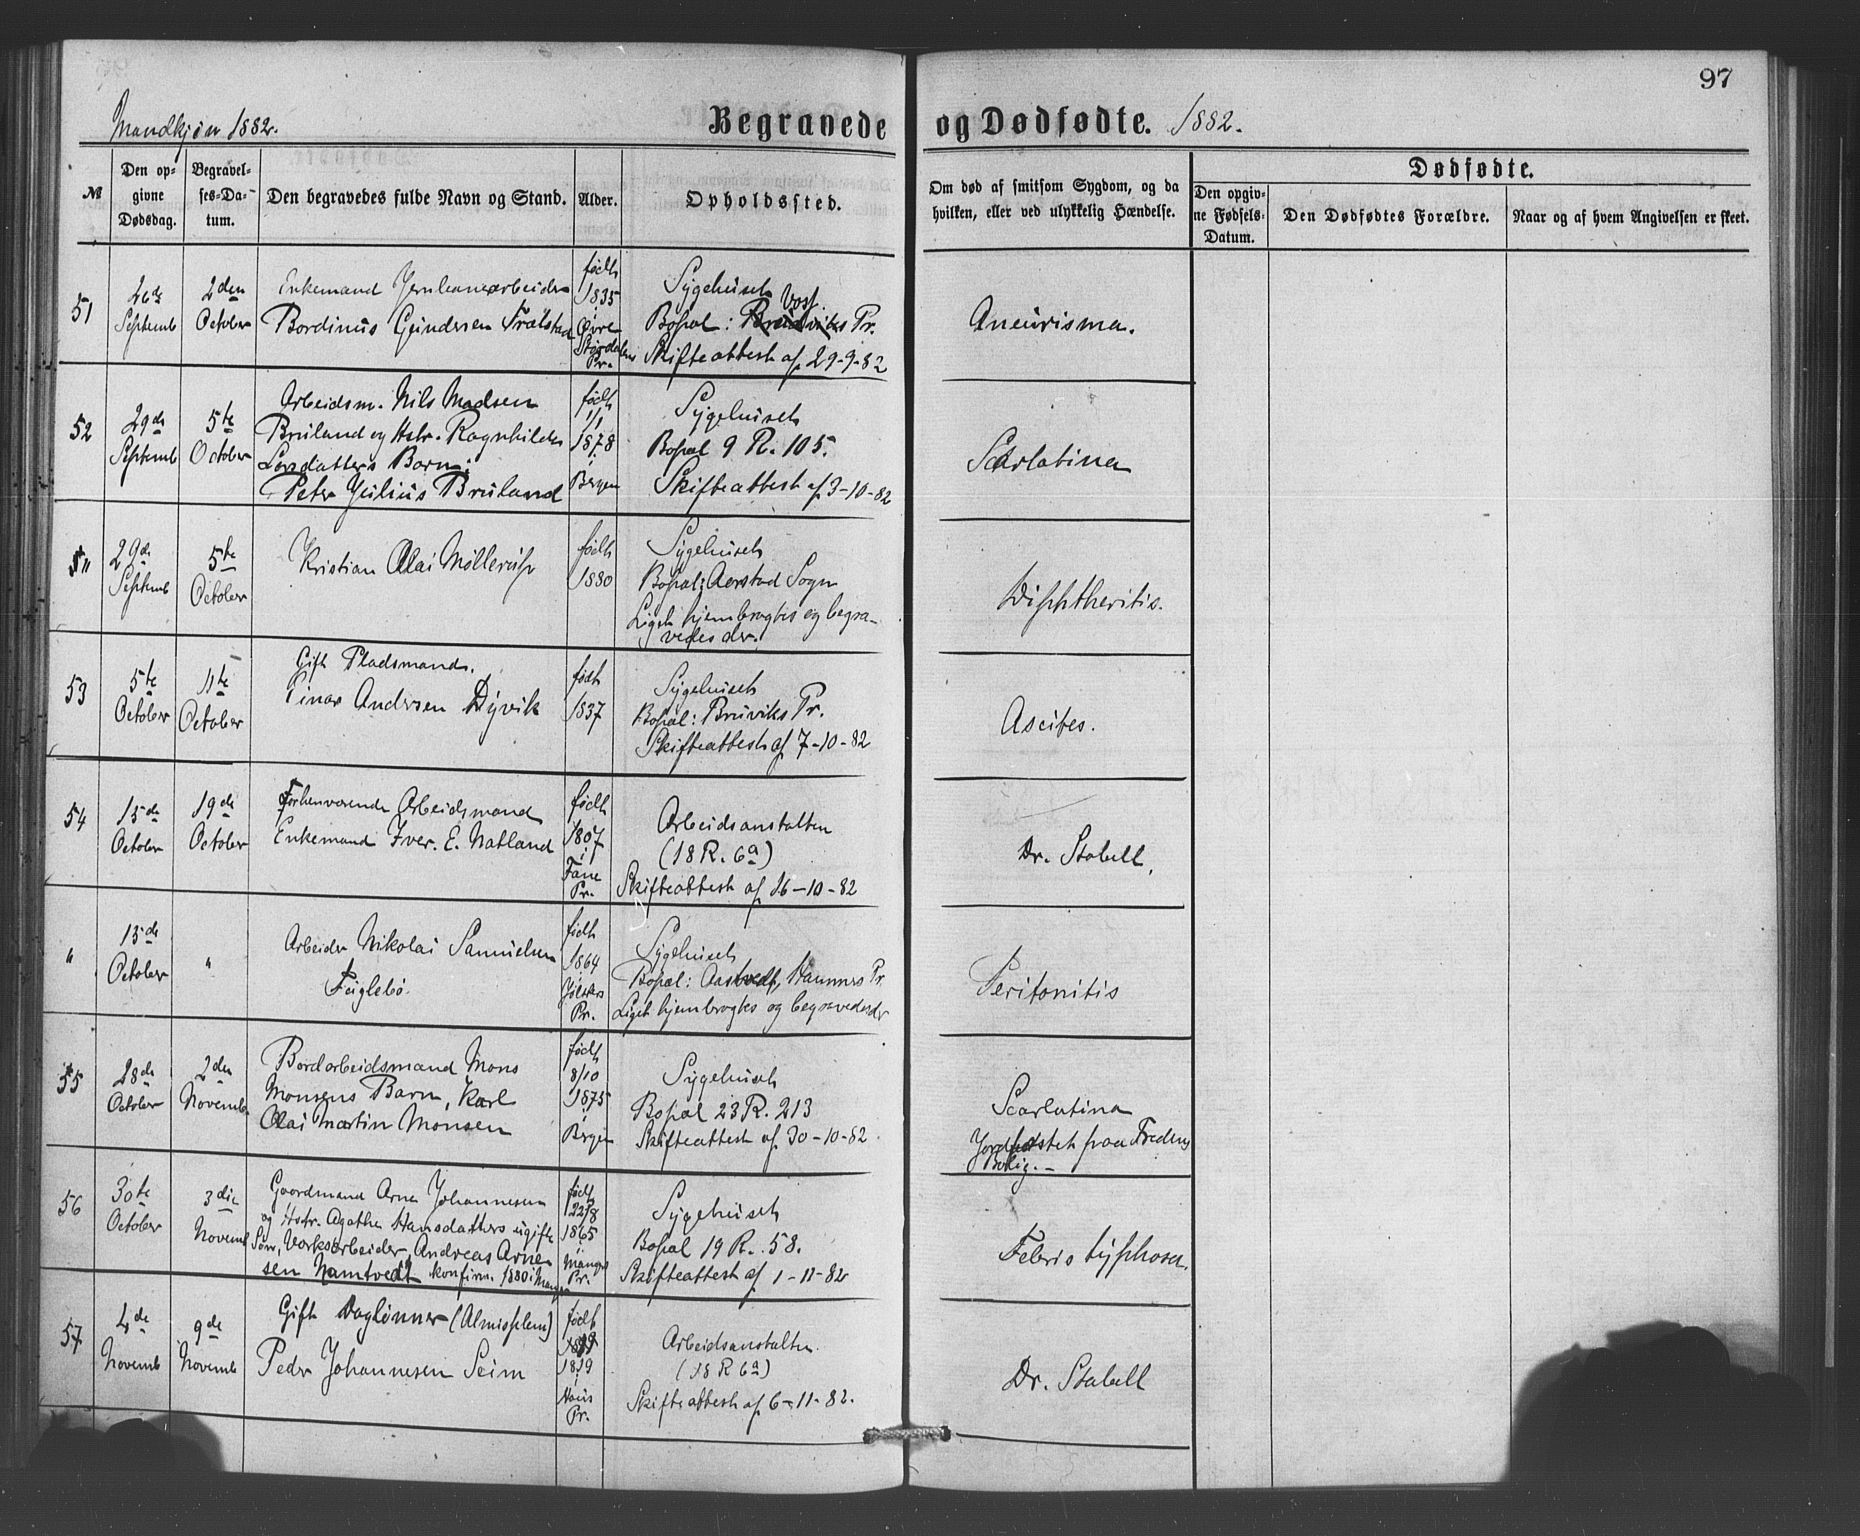 97
Mandkjøn 1882.
Begravede og Dødfødte. 1882.
№
Den opgivne Dødsdag.
Begravelses-Datum.
Den begravedes fulde Navn og Stand.
Alder.
Opholdssted.
Om død af smitsom Sygdom, og da hvilken, eller ved ulykkelig Hændelse.
Dødfødte.
Den opgivne Fødsels-Datum.
Den Dødfødtes Forældre.
Naar og af hvem Angivelsen er skeet.
51
26de Septemb
2den October
Enkemand Jernbanearbeider
Bordinus Gundersen
født 1835 i Øvre Størdalens Pr.
Sygehuset
Bopal: Voss Pr.
Skifteattest af 29-9-82
Aneurisma.
52
29de Septemb
5te October
Arbeidsm. Nils Madsen
Bruland og Hstr. Ragnhilda
Larsdatters Barn:
Peter Julius Bruland
født 1/1 1878 i Bergen
Sygehuset
Bopal 9 R. 105.
Skifteattest af 3-10-82
Scarlatina
"
29de Septemb
5te October
Kristian Olai Møllerup
født 1880
Sygehuset
Bopal: Aarstad Sogn
Liget hjembragtes og begra-
vedes der.
Diphtheritis.
53
5te October
11te October
Gift Pladsmand.
Einar Andersen Dyvik
født 1837
Sygehuset
Bopal: Bruviks Pr.
Skifteattest af 7-10-82
Ascites.
54
15de October
19de October
Forhenværende Arbeidsmand
Enkemand Iver. E. Natland
født 1807 i Fane Pr.
Arbeidsanstalten
(18 R. 6a)
Skifteattest af 16-10-82
Dr. Stabell,
"
15de October
"
Arbeider Nikolai Samuelsen
Fuglebø.
født 1864 Jølsters Pr.
Sygehuset
Bopal: Aastvedt, Hammers Pr.
Liget hjembragtes og begravedes der
Peritonitis
55
28de October
2den Novemb
Bordarbeidsmand Mons
Monsens Barn, Karl
Olai Martin Monsen
født 8/10 1875 i Bergen
Sygehuset
Bopal 23 R. 213
Skifteattest af 30-10-82
Scarlatina
Jordfæstet fraa Fredens
Bolig.-
56
30te October
3die Novemb
Gaardmand Arne Johannesen
og Hstr. Agathe Hansdatters ugifte
Søn, Værksarbeider, Andreas Arne-
sen Namtvedt konfirm. 1880 i Manger
født 22/8 1865 i Mangers Pr.
Sygehuset
Bopal 19 R. 58.
Skifteattest af 1-11-82
Febris typhosa.
57
4de Novemb
9de Novemb
Gift Daglønner (Almisselem)
Peder Johannesen Seim
født 1819 i Haus Pr.
Arbeidsanstalten.
(18 R 6a)
Skifteattest af 6-11-82.
Dr. Stabell